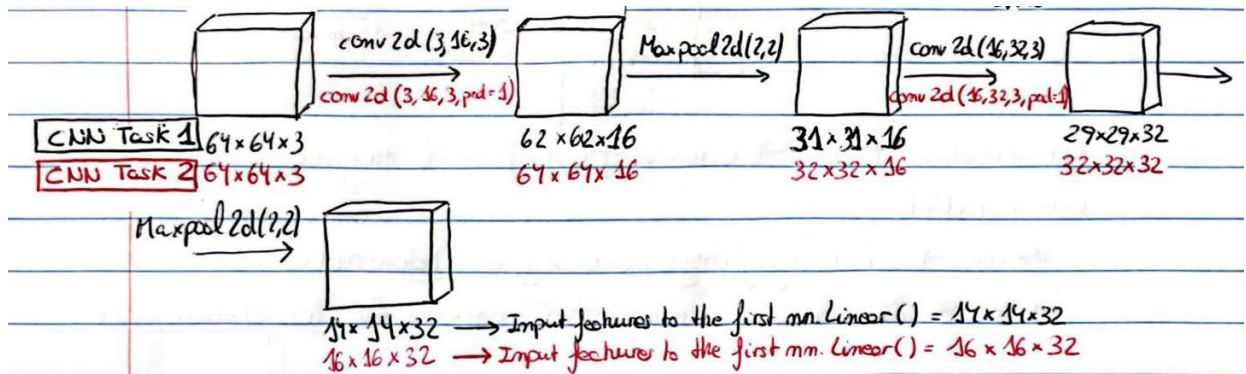 conv2d(3,16,3)
conv2d(3,16,3,pad=1)
Maxpool2d(2,2)
conv2d(16,32,3)
conv2d(16,32,3,pad=1)
CNN Task 1 64×64×3 62×62×16 31×31×16 29×29×32
CNN Task 2 64×64×3 64×64×16 32×32×16 32×32×32
Maxpool2d(2,2)
14×14×32 → Input features to the first nn.Linear() = 14×14×32
16×16×32 → Input features to the first nn.Linear() = 16×16×32